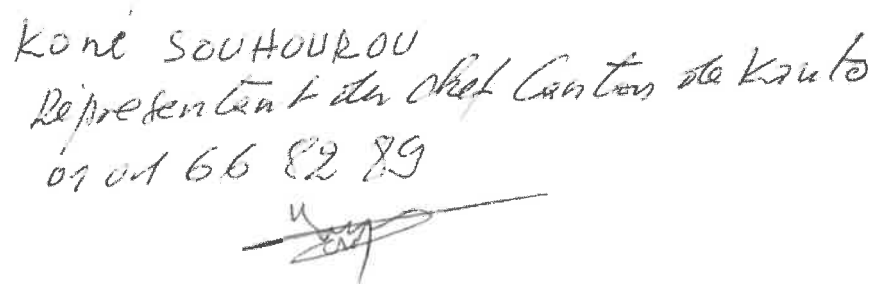 Koné SOUHOUROU
Représentant du chef Canton de Kanto
01 01 66 82 89